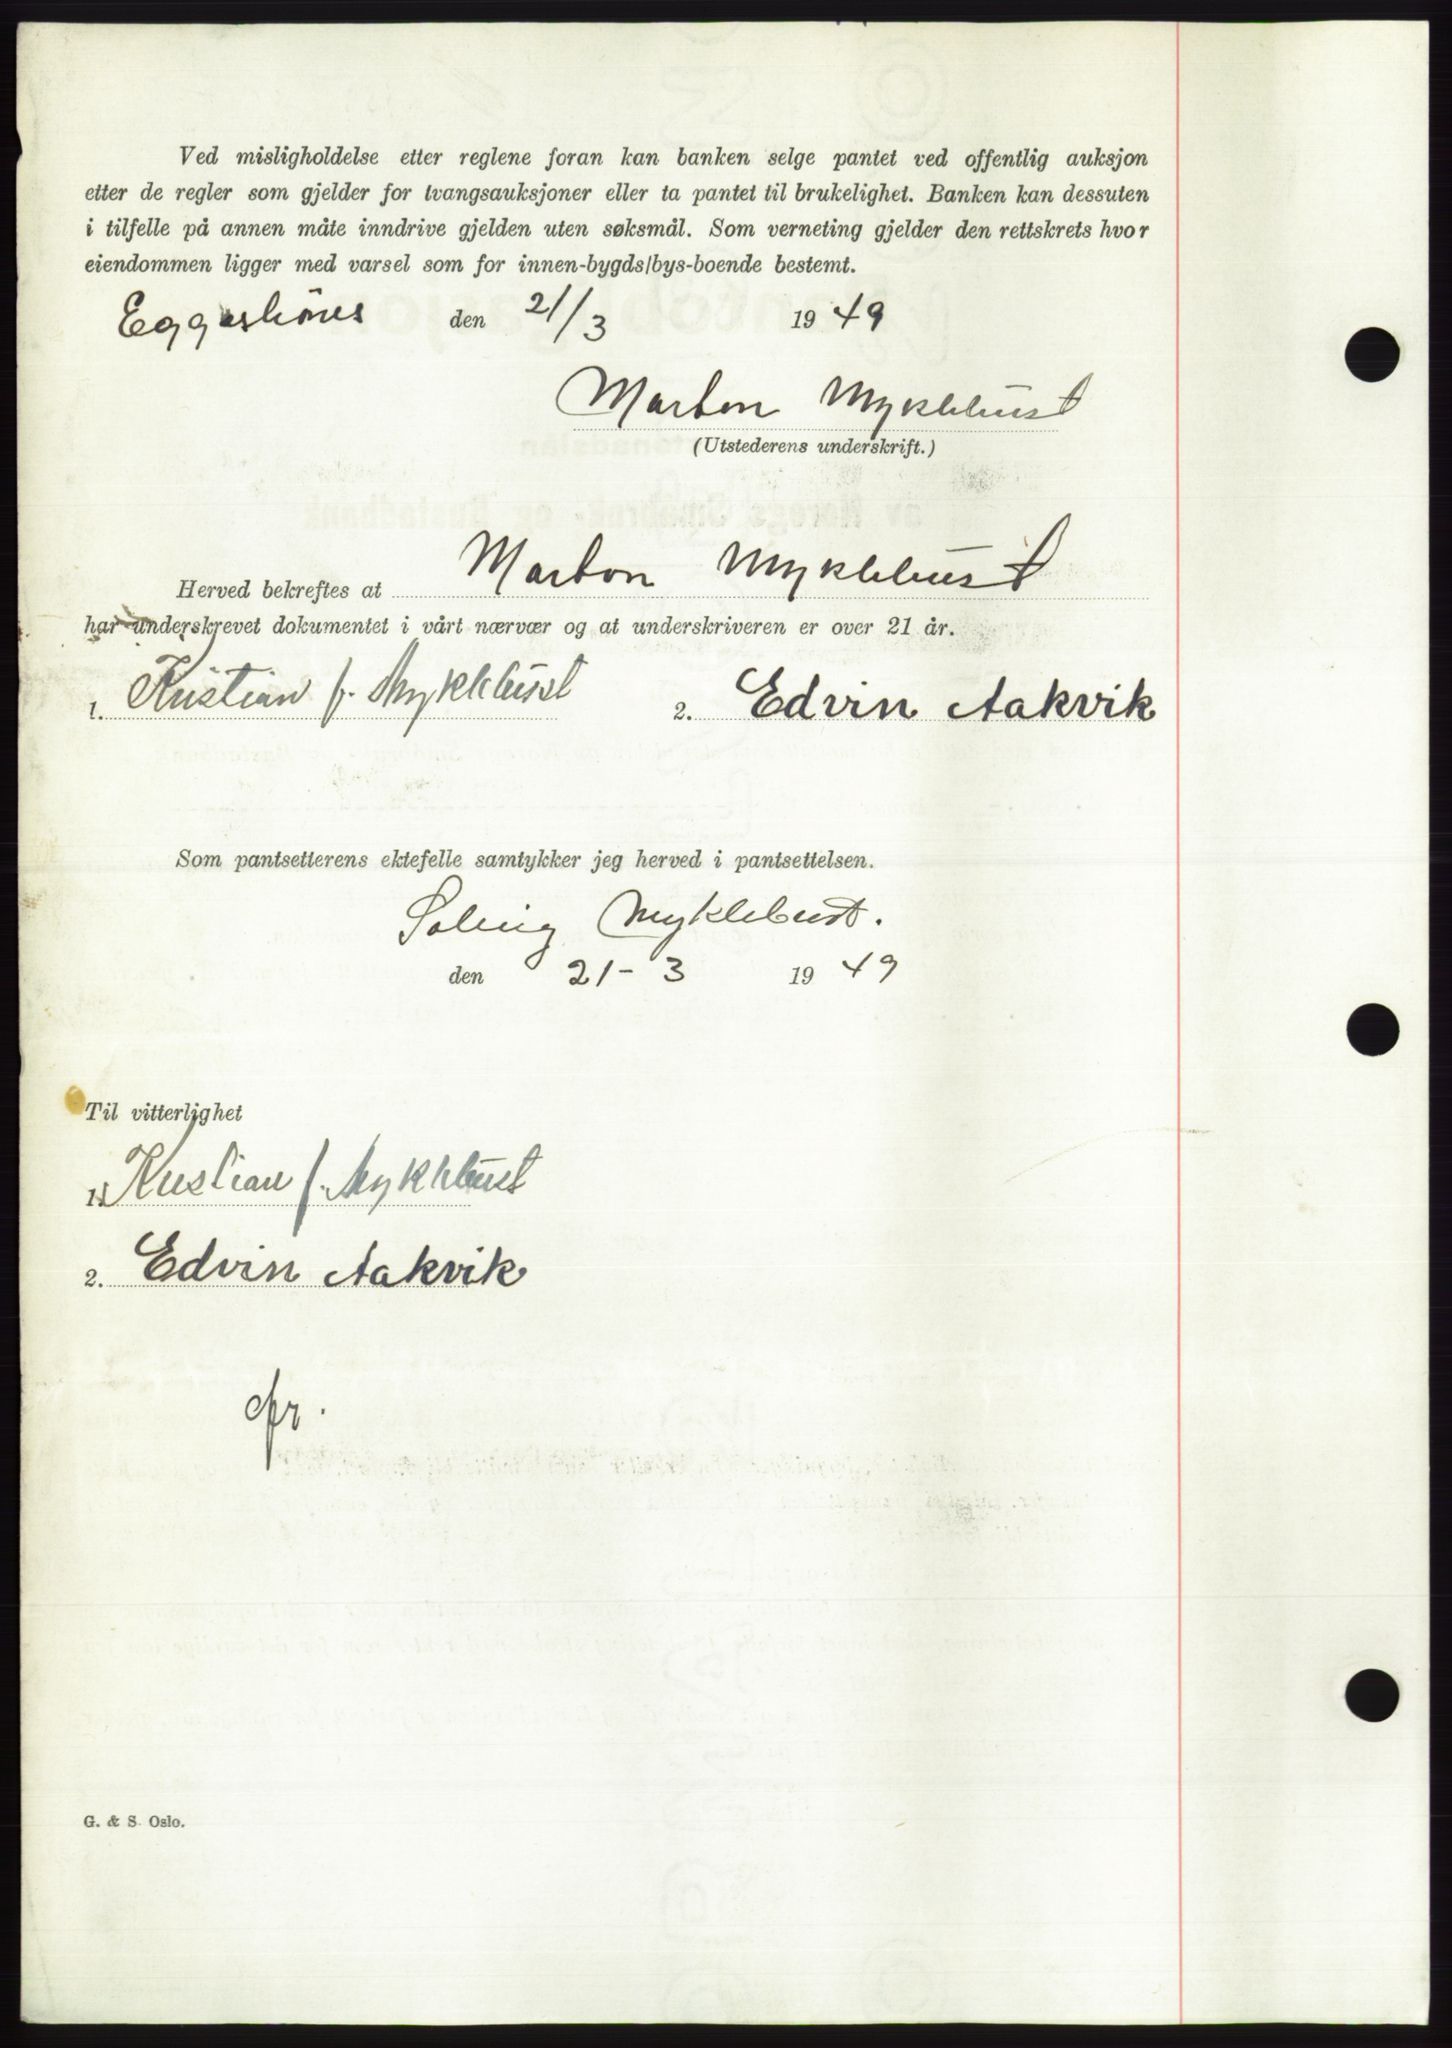 Ved misligholdelse etter reglene foran kan banken selge pantet ved offentlig auksjon
etter de regler som gjelder for tvangsauksjoner eller ta pantet til brukelighet. Banken kan dessuten
i tilfelle på annen måte inndrive gjelden uten søksmål. Som verneting gjelder den rettskrets hvor
eiendommen ligger med varsel som for innen-bygds/bys-boende bestemt.
Eggesbönes den 21/3 1949
Marton Myklebust
(Utstederens underskrift.)
Herved bekreftes at Marton Myklebust
har underskrevet dokumentet i vårt nærvær og at underskriveren er over 21 år.
1. Kristian J. Myklebust 2. Edvin Aakvik
Som pantsetterens ektefelle samtykker jeg herved i pantsettelsen.
Solveig Myklebust.
den 21-3 1949
Til vitterlighet
1. Kristian J. Myklebust
2. Edvin Aakvik
G. & S. Oslo.